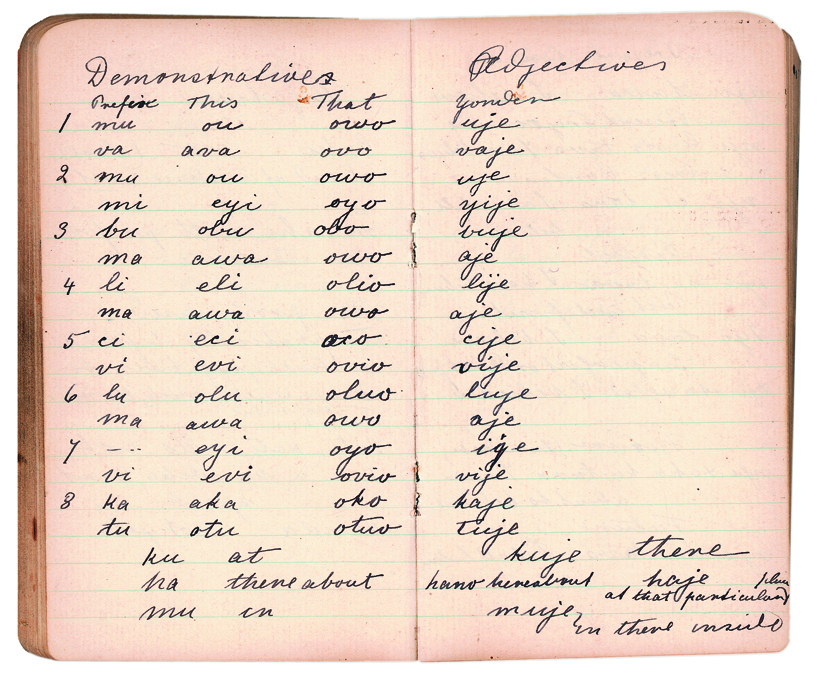 Demonstratives Adjectives
Prefix This That yonder
1 mu ou owo uje
va ava ovo vaje
2 mu ou owo uje
mi eyi oyo yije
3 bu obu obo vuje
ma awa owo aje
4 li eli olio lije
ma awa owo aje
5 ci eci oco cije
vi evi ovio vije
6 lu olu oluo luje
ma awa owo aje
7 --- eyi oyo ije
vi evi ovio vije
8 ka aka oko kaje
tu otu otuo tuje
ku at kuje there
ha thereabout hano hereabout haje
at that particular
mu in muje in there inside